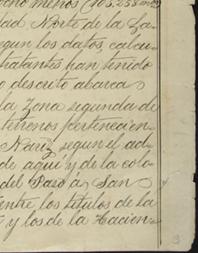 no menos (105,258 m
dad Norte de la Ga-
segun los datos, calcu-
tratantes han tenido
o descrito abarca
la Zona segunda de
terrenos pertenecien-
Nariz segun el ad-
de aquí y de la colo-
del Paso á San
entre los títulos de la
y los de la Hacien-